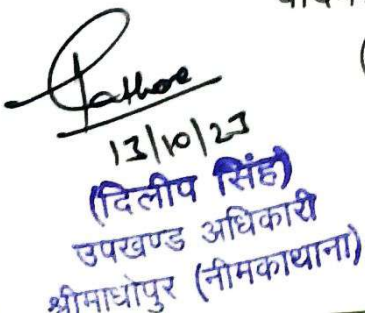 Rathore
13/10/23
(दिलीप सिंह)
उपखण्ड अधिकारी
श्रीमाधोपुर (नीमकाथाना)